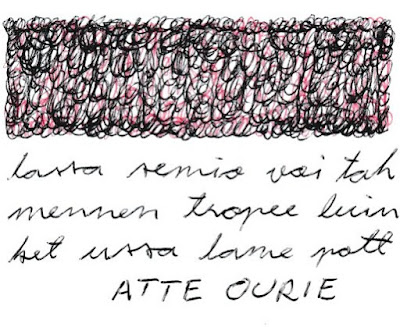 lassa semio vai tah
mennen tropee luin
set ussa lame pott
ATTE OURIE